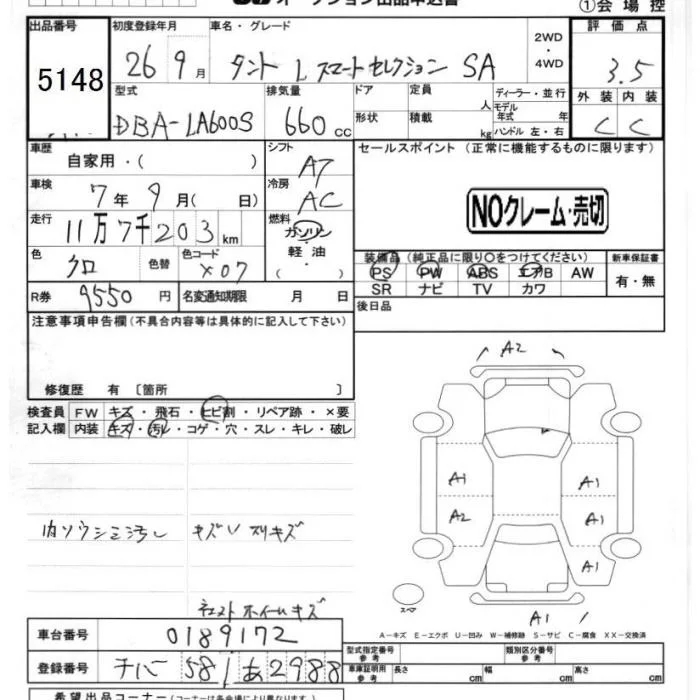 オークション出品申込書
①会場控
出品番号 初度登録年月 車名・グレード 2WD・4WD 評価点
5148 26 9月 タント L スマートセレクション SA 3.5
型式 排気量 ドア 定員 人 ディーラー・並行 外装 内装
DBA-LA600S 660cc 形状 積載 kg モデル年式 年 ハンドル 左・右 C C
車歴 自家用・( ) シフト AT セールスポイント (正常に機能するものに限ります)
車検 7年 9月( 日) 冷房 AC
NOクレーム・売切
走行 11万7千203km 燃料 ガソリン 軽油 ・( )
色 クロ 色替 色コード X07
装備品 (純正品に限り○をつけてください) 新車保証書
PS PW ABS エアB AW 有・無
SR ナビ TV カワ
R券 9550円 名変通知期限 月 日 後日品
注意事項申告欄(不具合内容等は具体的に記入して下さい)
修復歴 有 〔箇所 〕
検査員 FW キズ・飛石・ヒビ割・リペア跡・×要
記入欄 内装 キズ・汚レ・コゲ・穴・スレ・キレ・破レ
A2
A1 A1
A2 A1
A1
内ソウシミ汚レ キズU スリキズ
ホイールキズ
スペア
A1
A-キズ E-エクボ U-凹み W-補修跡 S-サビ C-腐食 XX-交換済
車台番号 0189172
型式指定番号 参考 類別区分番号 参考
登録番号 チバ 581 あ 2988
車庫証明用 参考 長さ cm 幅 cm 高さ cm
希望出品コーナー(コーナーは各会場により異なります)